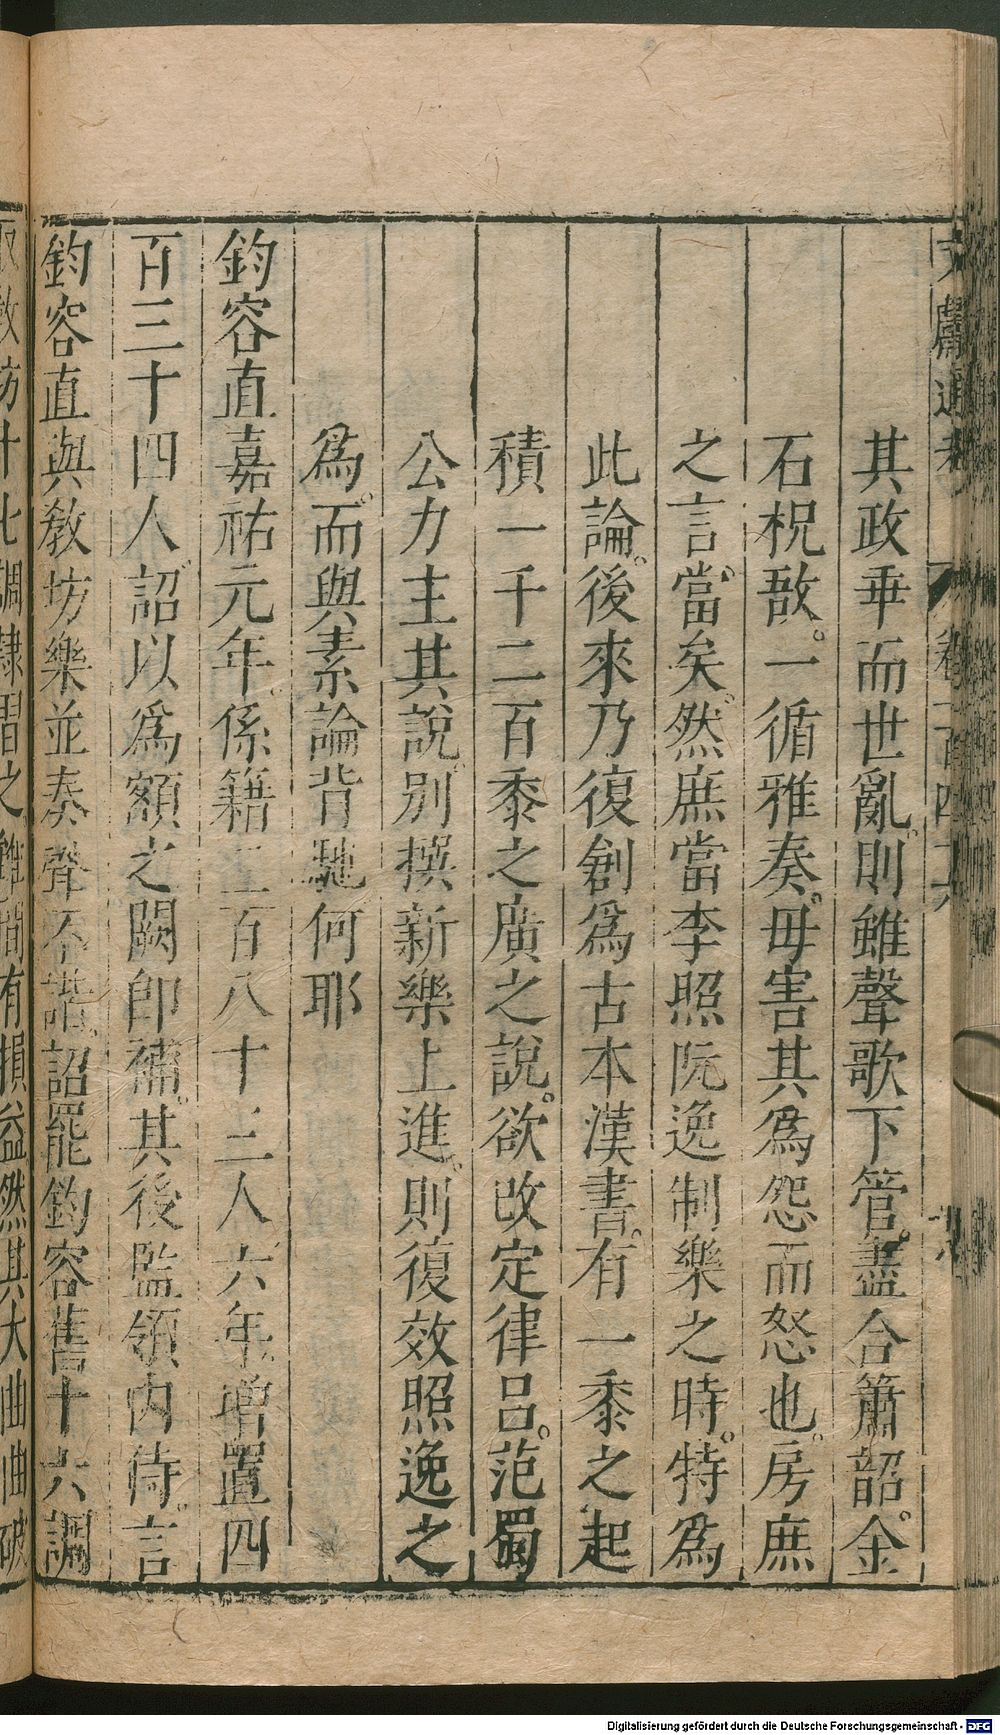 其政乖而世亂。則雖聲歌下管。盡合簫韶。金
石柷敔。一循雅奏。毋害其爲怨而怒也。房庶
之言當矣。然庶當李照阮逸制樂之時。特爲
此論。後來乃復創爲古本漢書。有一黍之起
積一千二百黍之廣之說。欲改定律呂。范蜀
公力主其說。別撰新樂上進。則復效照逸之
爲。而與素論背馳何耶
鈞容直嘉祐元年。係籍三百八十三人六年。增置四
百三十四人。詔以爲額之闕卽補。其後監領内侍。言
鈞容直與教坊樂並奏聲不諧。詔罷鈞容舊十六調
教坊十七調肄習之雖間有損益然其大曲曲破
Digitalisierung gefördert durch die Deutsche Forschungsgemeinschaft - DFG